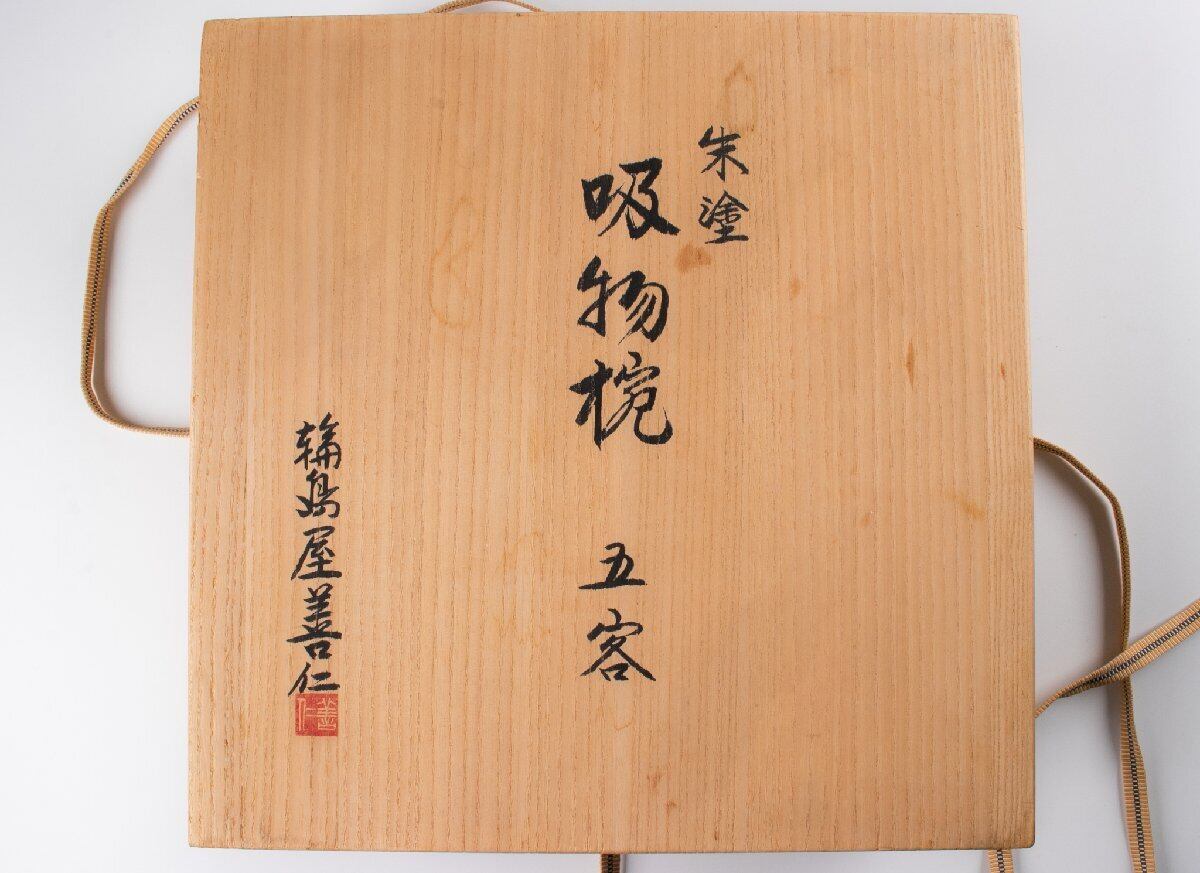 朱塗
吸物椀 五客
輪島屋善仁
善仁